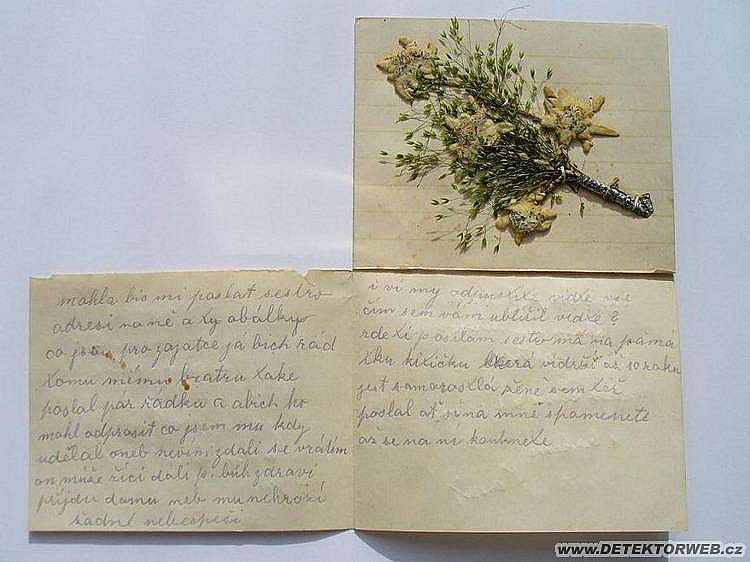 mohla bis mi poslat sestro
adresi na ně a ty obálky
co jsou pro zajatce ja bich rád
tomu mému bratru take
poslal par řadku a abich ho
mohl odprosit co jsem mu kdy
udělal oneb nevim zdali se vrátím
on může řící dáli p. bůh zdraví
přijdu domu neb mu nehrozí
řadné nebespečí
i vi my odpusťte vidle vše
čim sem vám ubližil vidle
zde ti posílám sestro má na pamá
tku kitičku která vidrží až 10 roku
jest samorostlá pěně sem
poslal ať si na mně spomenete
až se na ni kouknete
www.DETEKTORWEB.cz